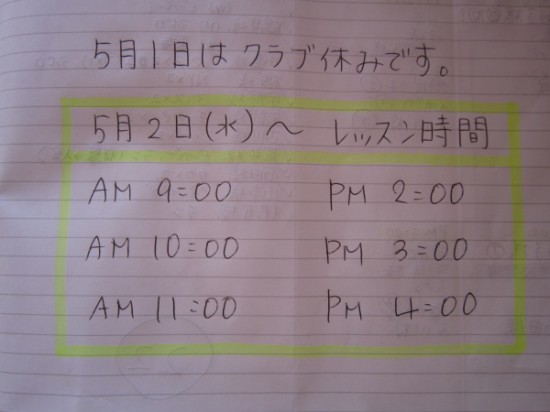 5月1日は クラブ休みです。
5月2日(水)〜 レッスン時間
AM 9=00 PM 2=00
AM 10=00 PM 3=00
AM 11=00 PM 4=00